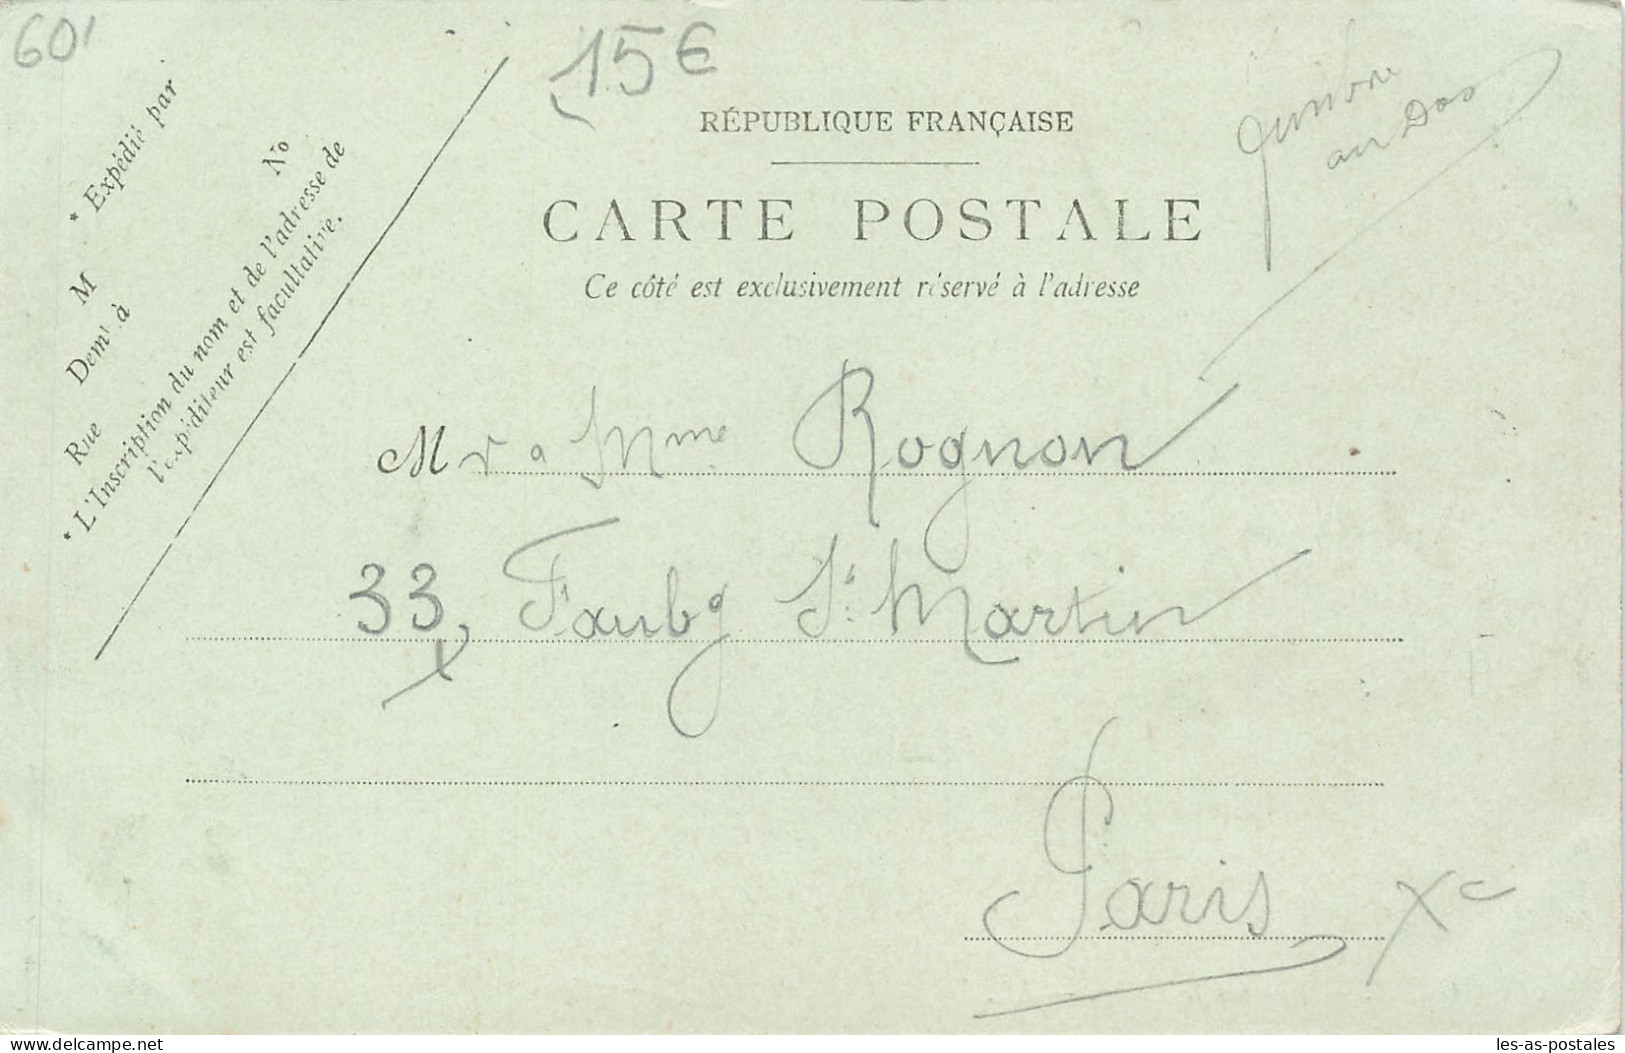 601
15€
Timbre
au Dos
RÉPUBLIQUE FRANÇAISE
CARTE POSTALE
Ce côté est exclusivement réservé à l'adresse
* Expédié par
M
Demt à
Rue
No
* L'Inscription du nom et de l'adresse de
l'expéditeur est facultative.
Mr & Mme Rognon
33, Faubg St Martin
Paris Xe
delcampe.net
les-as-postales